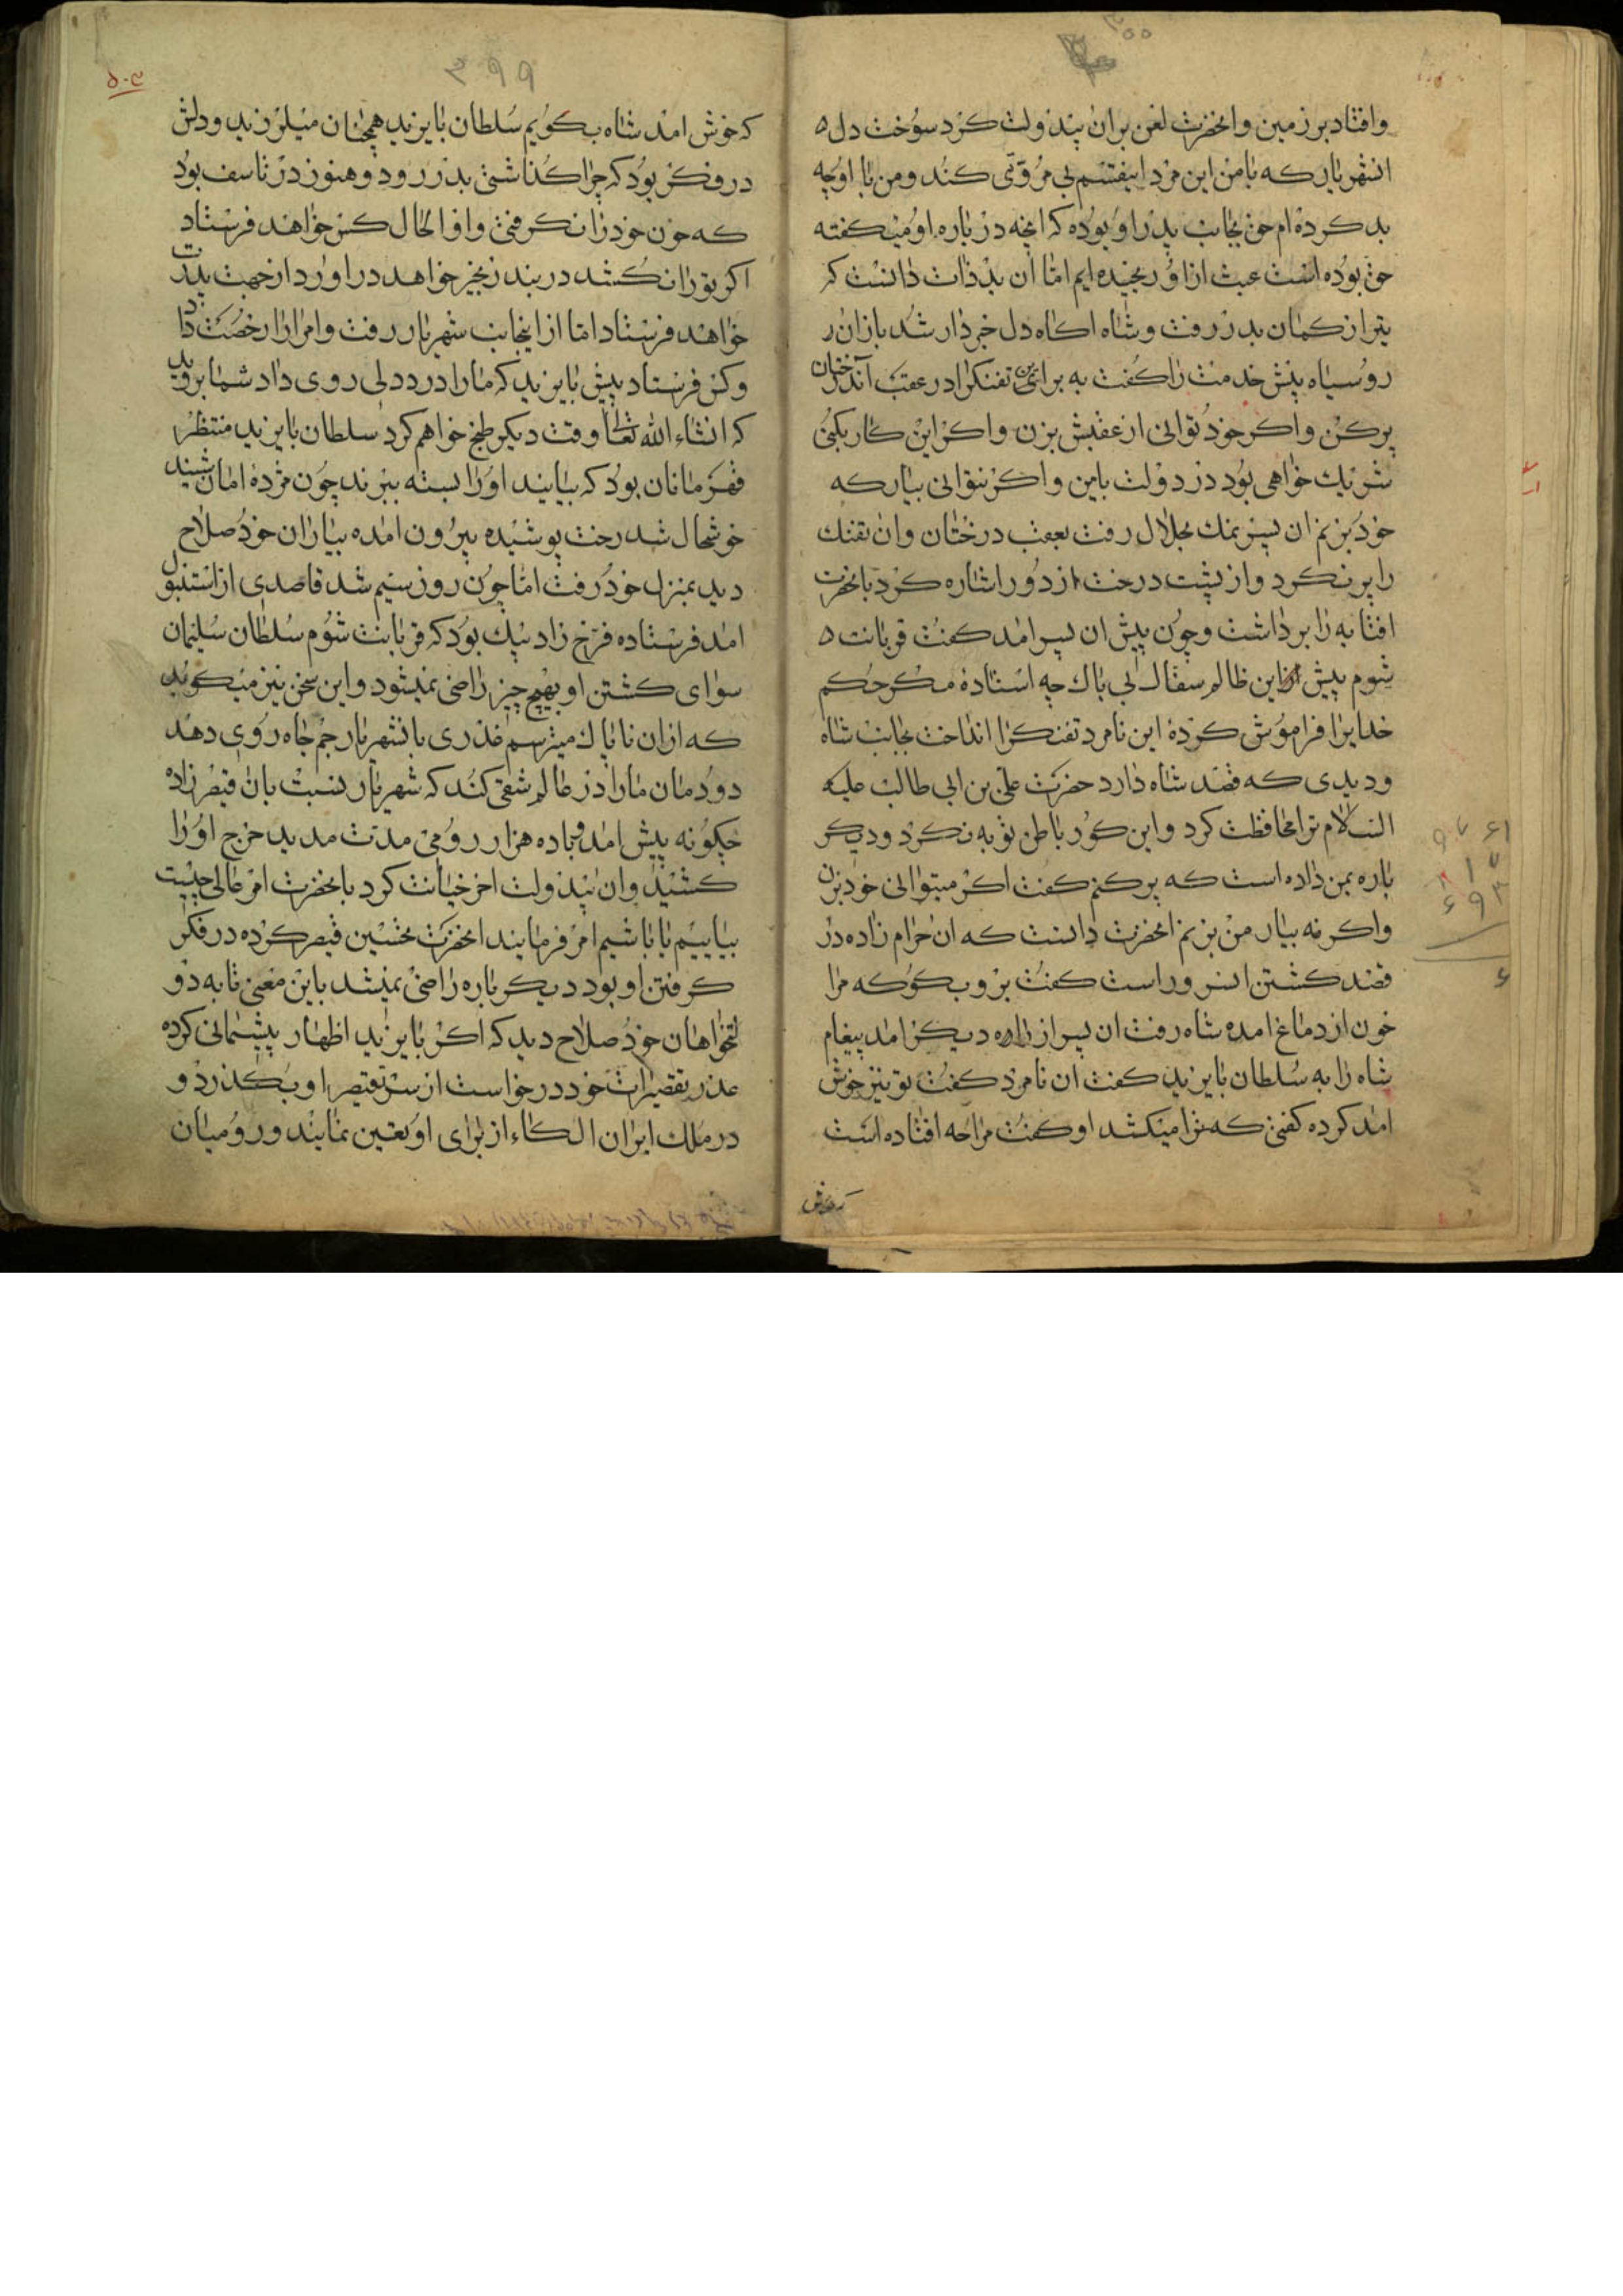 وافتاد بر زمین وانحضرت لعن بران بیدولت کرد سوخت دل
انشهریار که بامن این مرد اینقسم بی مروتی کند ومن با او چه
بد کرده ام حق بجانب پدر او بوده که انچه در باره او میگفته
حق بوده است عبث از او رنجیده ایم اما ان بد ذات دانست که
تیر از کمان بدر رفت وشاه اکاه دل خبردار شد باز ان
روسیاه پیش خدمت را کفت به برا تفنکرا در عقب درختان
پر کن واکر خود توانی از عقبش بزن واکر این کار بکنی
شریک خواهی بود در دولت بامن واکر نتوانی بیار که
خود بزنم ان پسر نمک بحلال رفت بعقب درختان وان تفنک
را پر نکرد واز پشت درخت از دور اشاره کرد بانحضرت
افتابه را برداشت وچون پیش ان پسر امد کفت قربانت
شوم پیش این ظالم سفاک بی باک چه استاده مکر حکم
خدایرا فراموش کرده این نامرد تفنکرا انداخت بجانب شاه
ودیدی که قصد شاه دارد حضرت علی بن ابی طالب علیه
السلام ترا محافظت کرد واین کور باطن توبه نکرد ودیکر
باره بمن داده است که پر کنم کفت اکر میتوانی خود بزن
واکر نه بیار من بزنم انحضرت دانست که ان حرام زاده در
قصد کشتن انسرور است کفت برو بکو که مرا
خون از دماغ امده شاه رفت ان پسر از راه دیکر امد پیغام
شاه را به سلطان بایزید کفت ان نامرد کفت تو نیز خوش
امد کرده کفتی که ترا میکشد او کفت مرا چه افتاده است
که خوش
۲۹۹
که خوش امد شاه بکویم سلطان بایزید همچنان میلرزید ودلش
در فکر بود که چرا کذاشتی بدر رود وهنوز در تاسف بود
که خون خود را نکرفتی واو الحال کس خواهد فرستاد
اکر تو را نکشد در بند زنجیر خواهد در اورد از جهت پدرت
خواهند فرستاد اما از اینجانب شهریار رفت وامرا را رخصت داد
وکس فرستاد پیش بایزید که ما را درد دلی روی داد شما بروید
که انشاء الله تعالی وقت دیکر طبخ خواهم کرد سلطان بایزید منتظر
قهرمانان بود که بیایند او را بسته ببرند چون مژده امان شنید
خوشحال شد رخت پوشیده بیرون امده بیاران خود صلاح
دید بمنزل خود رفت اما چون روز سیم شد قاصدی از استنبول
امد فرستاده فرخ زاد بیک بود که قربانت شوم سلطان سلیمان
سوای کشتن او بهیچ چیز راضی نمیشود واین سخن نیز میکوید
که از ان ناپاک میترسم غدری با شهریار جم جاه روی دهد
دودمان ما را در عالم شقی کند که شهریار نسبت بان قیصر زاده
چکونه پیش امد ده هزار رومی مدت مدید خرج او را
کشید وان بیدولت اخر خیانت کرد بانحضرت امر عالی چیست
بیاییم یا باشیم امر فرمایند انحضرت تحسین قیصر کرده در فکر
کرفتن او بود دیکر باره راضی نمیشد باین معنی تا به دو
لتخواهان خود صلاح دید که اکر بایزید اظهار پشیمانی کرده
عذر تقصیرات خود درخواست از سر تقصیر او بکذرد و
در ملک ایران الکاء از برای او تعیین نمایند ورومیان